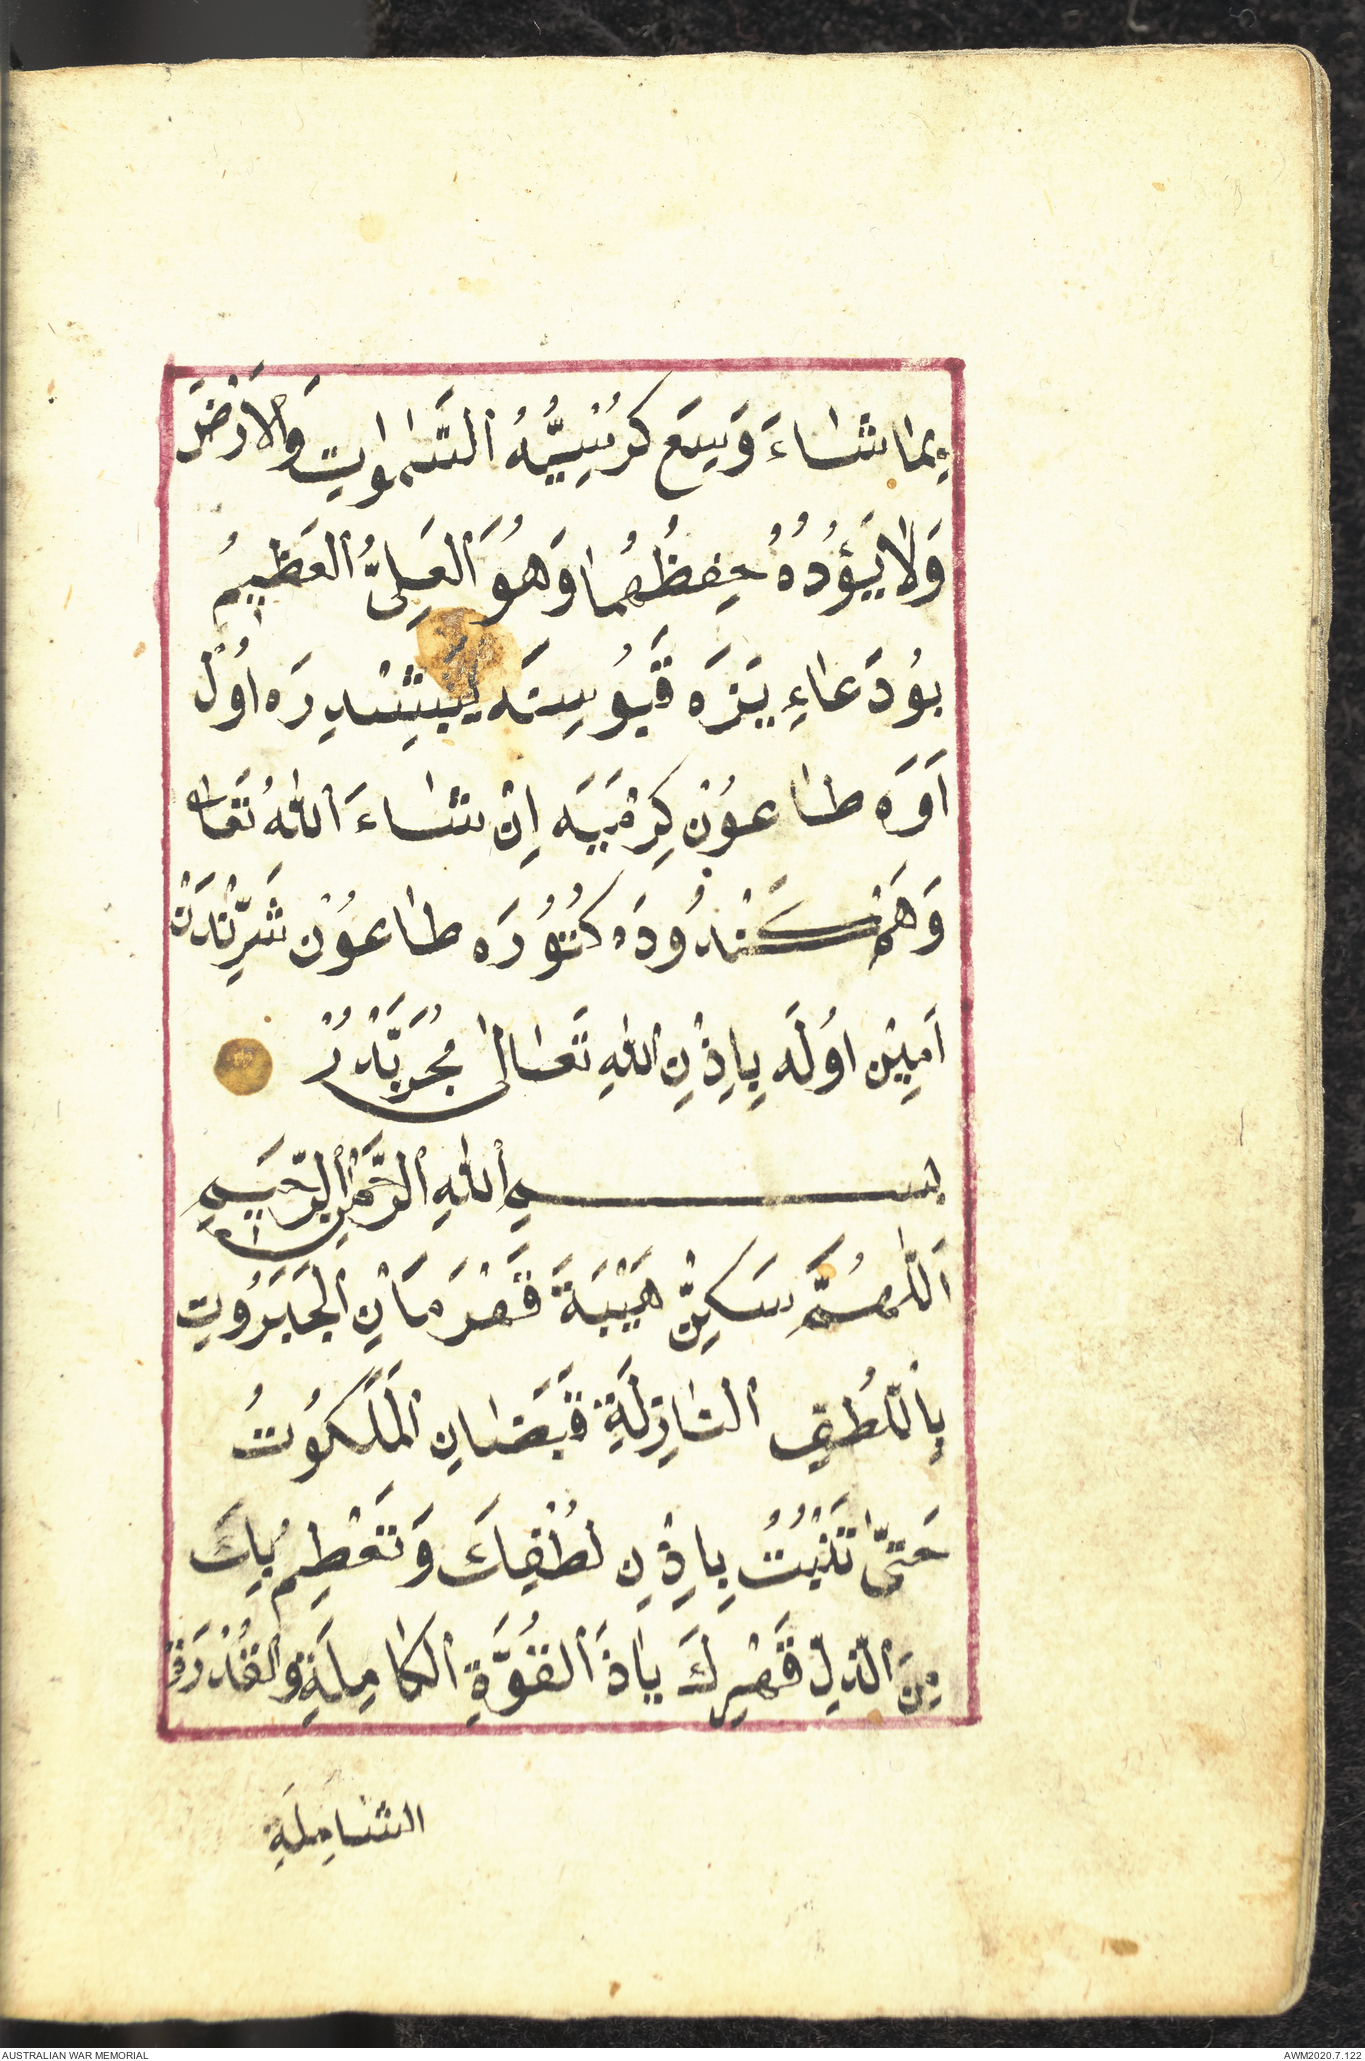 بِمَا شَاءَ وَسِعَ كُرْسِيُّهُ السَّمٰوَاتِ وَالْاَرْضَ
وَلَا يَؤُدُهُ حِفظُهُمَا وَهُوَ الْعَلِىُّ الْعَظٖيمُ
بُو دَعَاءِ يَزَه قَپُوسِنَه يَپِشْدِرَه اُولْ
اَوَه طَاعوُنْ كِرْمَيَه اِنْ شَاءَ اللهُ تَعَالٰى
وَهَمْ كَنْدُودَه كُتُورَه طَاعوُنْ شَرِّنْدَنْ
اَمٖينْ اوُلَه بِاِذْنِ اللهِ تَعَالٰى مُجَرَّبْدُرْ
بسم اللهِ الرَّحْمٰنِ الرَّحٖيمِ
اَللّٰهُمَّ سَكِّنْ هَيْبَةَ قَهْرَمَانِ الْجَبَرُوتِ
بِاللُّطْفِ النَّازِلَةِ قَبَضَانِ الْمَلَكُوتُ
حَتّٰى تَثْبُتُ بِاِذْنِ لُطْفِكَ وَتَعْطِمُ بِكَ
مِنَ الذِلّ قَهْرِكَ يَاذَ الْقُوَّةِ الْكَامِلَةِ وَالْقُدْرَة
الشَامِلَةِ
AUSTRALIAN WAR MEMORIAL
AWM2020.7.122